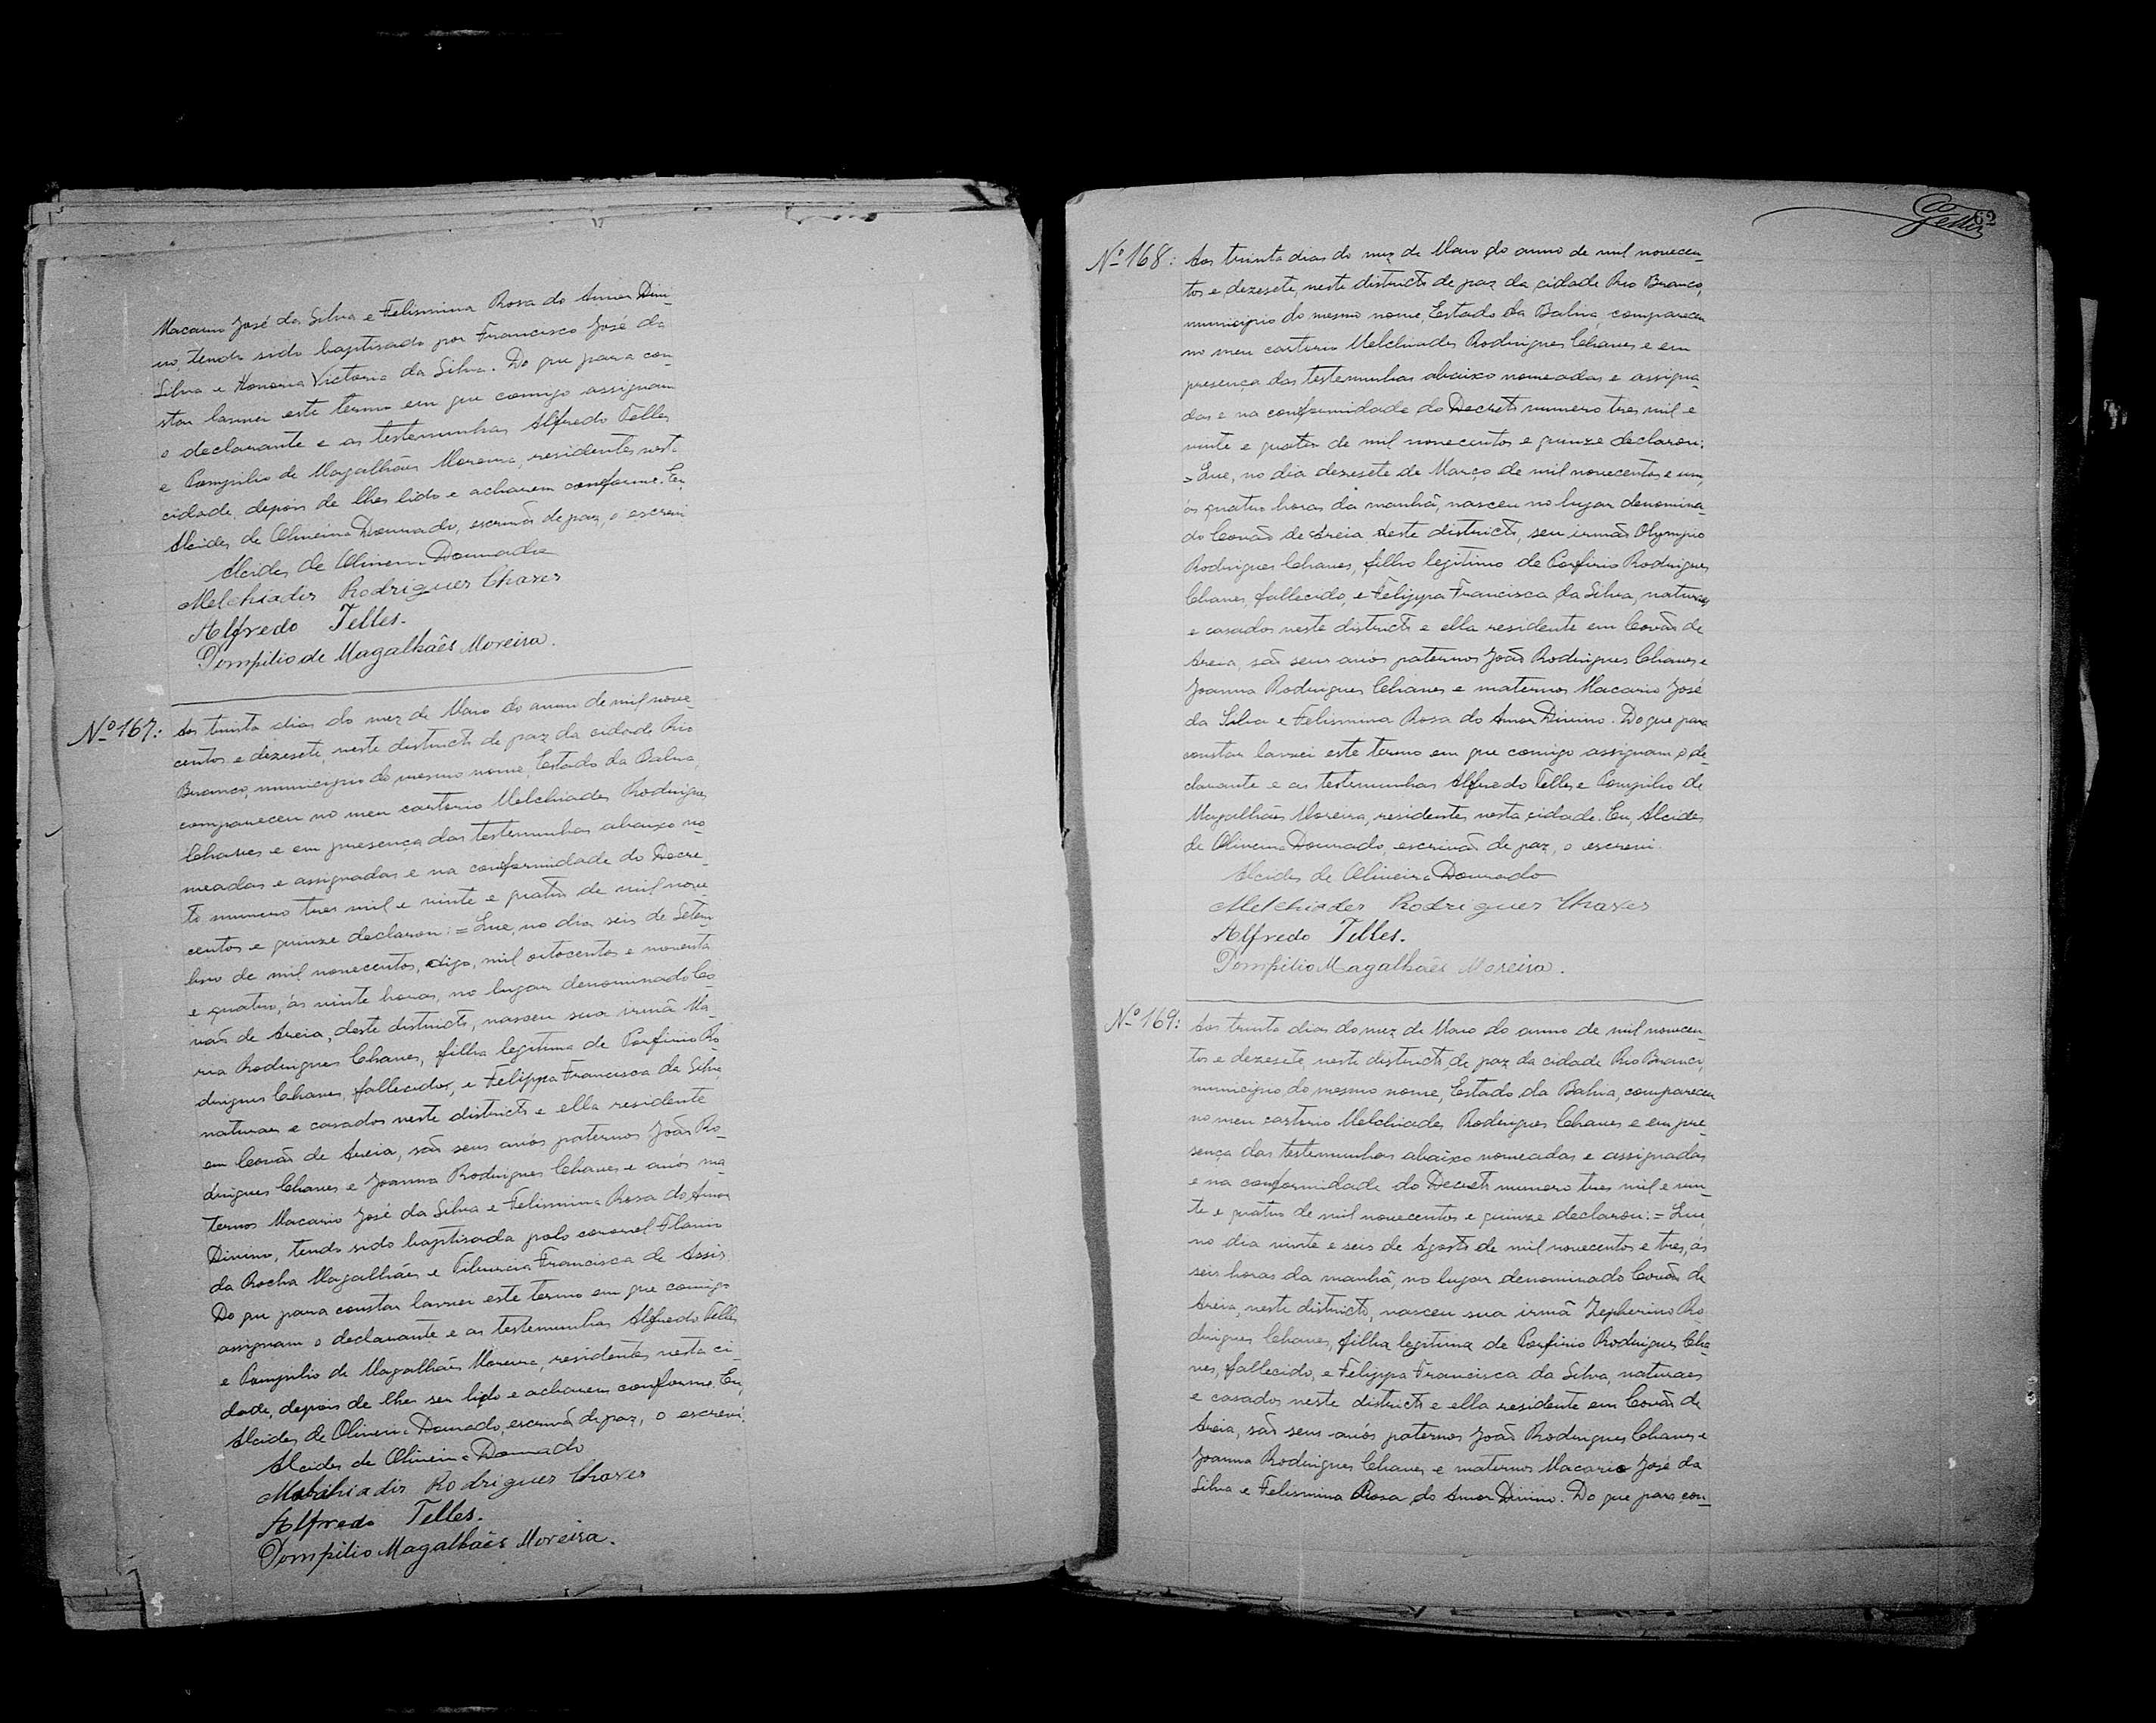 Macario José da Silva e Felismina Rosa do Amor Divi-
no, tendo sido baptisado por Francisco José da
Silva e Honoria Victoria da Silva. Do que para con-
star lavrei este termo em que comigo assignam
o declarante e as testemunhas Alfredo Telles
e Pompilio de Magalhães Moreira, residentes nesta
cidade, depois de lhes lido e acharem conforme. Eu,
Alcides de Oliveira Dourado, escrivão de paz, o escrevi
Alcides de Oliveira Dourado
Melchiades Rodrigues Chaves
Alfredo Telles.
Pompilio de Magalhães Moreira.
Nº 167: Aos trinta dias do mez de Maio do anno de mil nove-
centos e dezesete, neste districto de paz da cidade Rio
Branco, municipio do mesmo nome, Estado da Bahia,
compareceu no meu cartorio Melchiades Rodrigues
Chaves e em presença das testemunhas abaixo no-
meadas e assignadas e na conformidade do Decre-
to numero tres mil e vinte e quatro de mil nove-
centos e quinze declarou: = Que, no dia seis de Setem-
bro de mil novecentos, digo, mil oitocentos e noventa
e quatro, ás vinte horas, no lugar denominado Co-
vão de Areia, deste districto, nasceu sua irmã Ma-
ria Rodrigues Chaves, filha legitima de Porfirio Ro-
drigues Chaves, fallecido, e Felippa Francisca da Silva,
naturaes e casados neste districto e ella residente
em Covão de Areia, são seus avós paternos João Ro-
drigues Chaves e Joanna Rodrigues Chaves e avós ma-
ternos Macario José da Silva e Felismina Rosa do Amor
Divino, tendo sido baptisada pelo coronel Flavio
da Rocha Magalhães e Francisca de Assis.
Do que para constar lavrei este termo em que comigo
assignam o declarante e as testemunhas Alfredo Telles
e Pompilio de Magalhães Moreira, residentes nesta ci-
dade, depois de lhes ser lido e acharem conforme. Eu,
Alcides de Oliveira Dourado, escrivão de paz, o escrevi.
Alcides de Oliveira Dourado
Melchiades Rodrigues Chaves
Alfredo Telles.
Pompilio Magalhães Moreira.
62
Telles
Nº 168: Aos trinta dias do mez de Maio do anno de mil novecen-
tos e dezesete, neste districto de paz da cidade Rio Branco,
municipio do mesmo nome, Estado da Bahia, compareceu
no meu cartorio Melchiades Rodrigues Chaves e em
presença das testemunhas abaixo nomeadas e assigna-
das e na conformidade do Decreto numero tres mil e
vinte e quatro de mil novecentos e quinze declarou:
= Que, no dia dezesete de Março de mil novecentos e um,
ás quatro horas da manhã, nasceu no lugar denomina-
do Covão de Areia deste districto, seu irmão Olympio
Rodrigues Chaves, filho legitimo de Porfirio Rodrigues
Chaves, fallecido, e Felippa Francisca da Silva, naturaes
e casados neste districto e ella residente em Covão de
Areia, são seus avós paternos João Rodrigues Chaves e
Joanna Rodrigues Chaves e maternos Macario José
da Silva e Felismina Rosa do Amor Divino. Do que para
constar lavrei este termo em que comigo assignam o de-
clarante e as testemunhas Alfredo Telles e Pompilio de
Magalhães Moreira, residentes nesta cidade. Eu, Alcides
de Oliveira Dourado, escrivão de paz, o escrevi.
Alcides de Oliveira Dourado
Melchiades Rodrigues Chaves
Alfredo Telles.
Pompilio Magalhães Moreira.
Nº 169: Aos trinta dias do mez de Maio do anno de mil novecen-
tos e dezesete, neste districto de paz da cidade Rio Branco,
municipio do mesmo nome, Estado da Bahia, compareceu
no meu cartorio Melchiades Rodrigues Chaves e em pre-
sença das testemunhas abaixo nomeadas e assignadas
e na conformidade do Decreto numero tres mil e vin-
te e quatro de mil novecentos e quinze declarou: = Que,
no dia vinte e seis de Agosto de mil novecentos e tres, ás
seis horas da manhã, no lugar denominado Covão de
Areia, neste districto, nasceu sua irmã Zepherina Ro-
drigues Chaves, filha legitima de Porfirio Rodrigues Cha-
ves, fallecido, e Felippa Francisca da Silva, naturaes
e casados neste districto e ella residente em Covão de
Areia, são seus avós paternos João Rodrigues Chaves e
Joanna Rodrigues Chaves e maternos Macario José da
Silva e Felismina Rosa do Amor Divino. Do que para con-